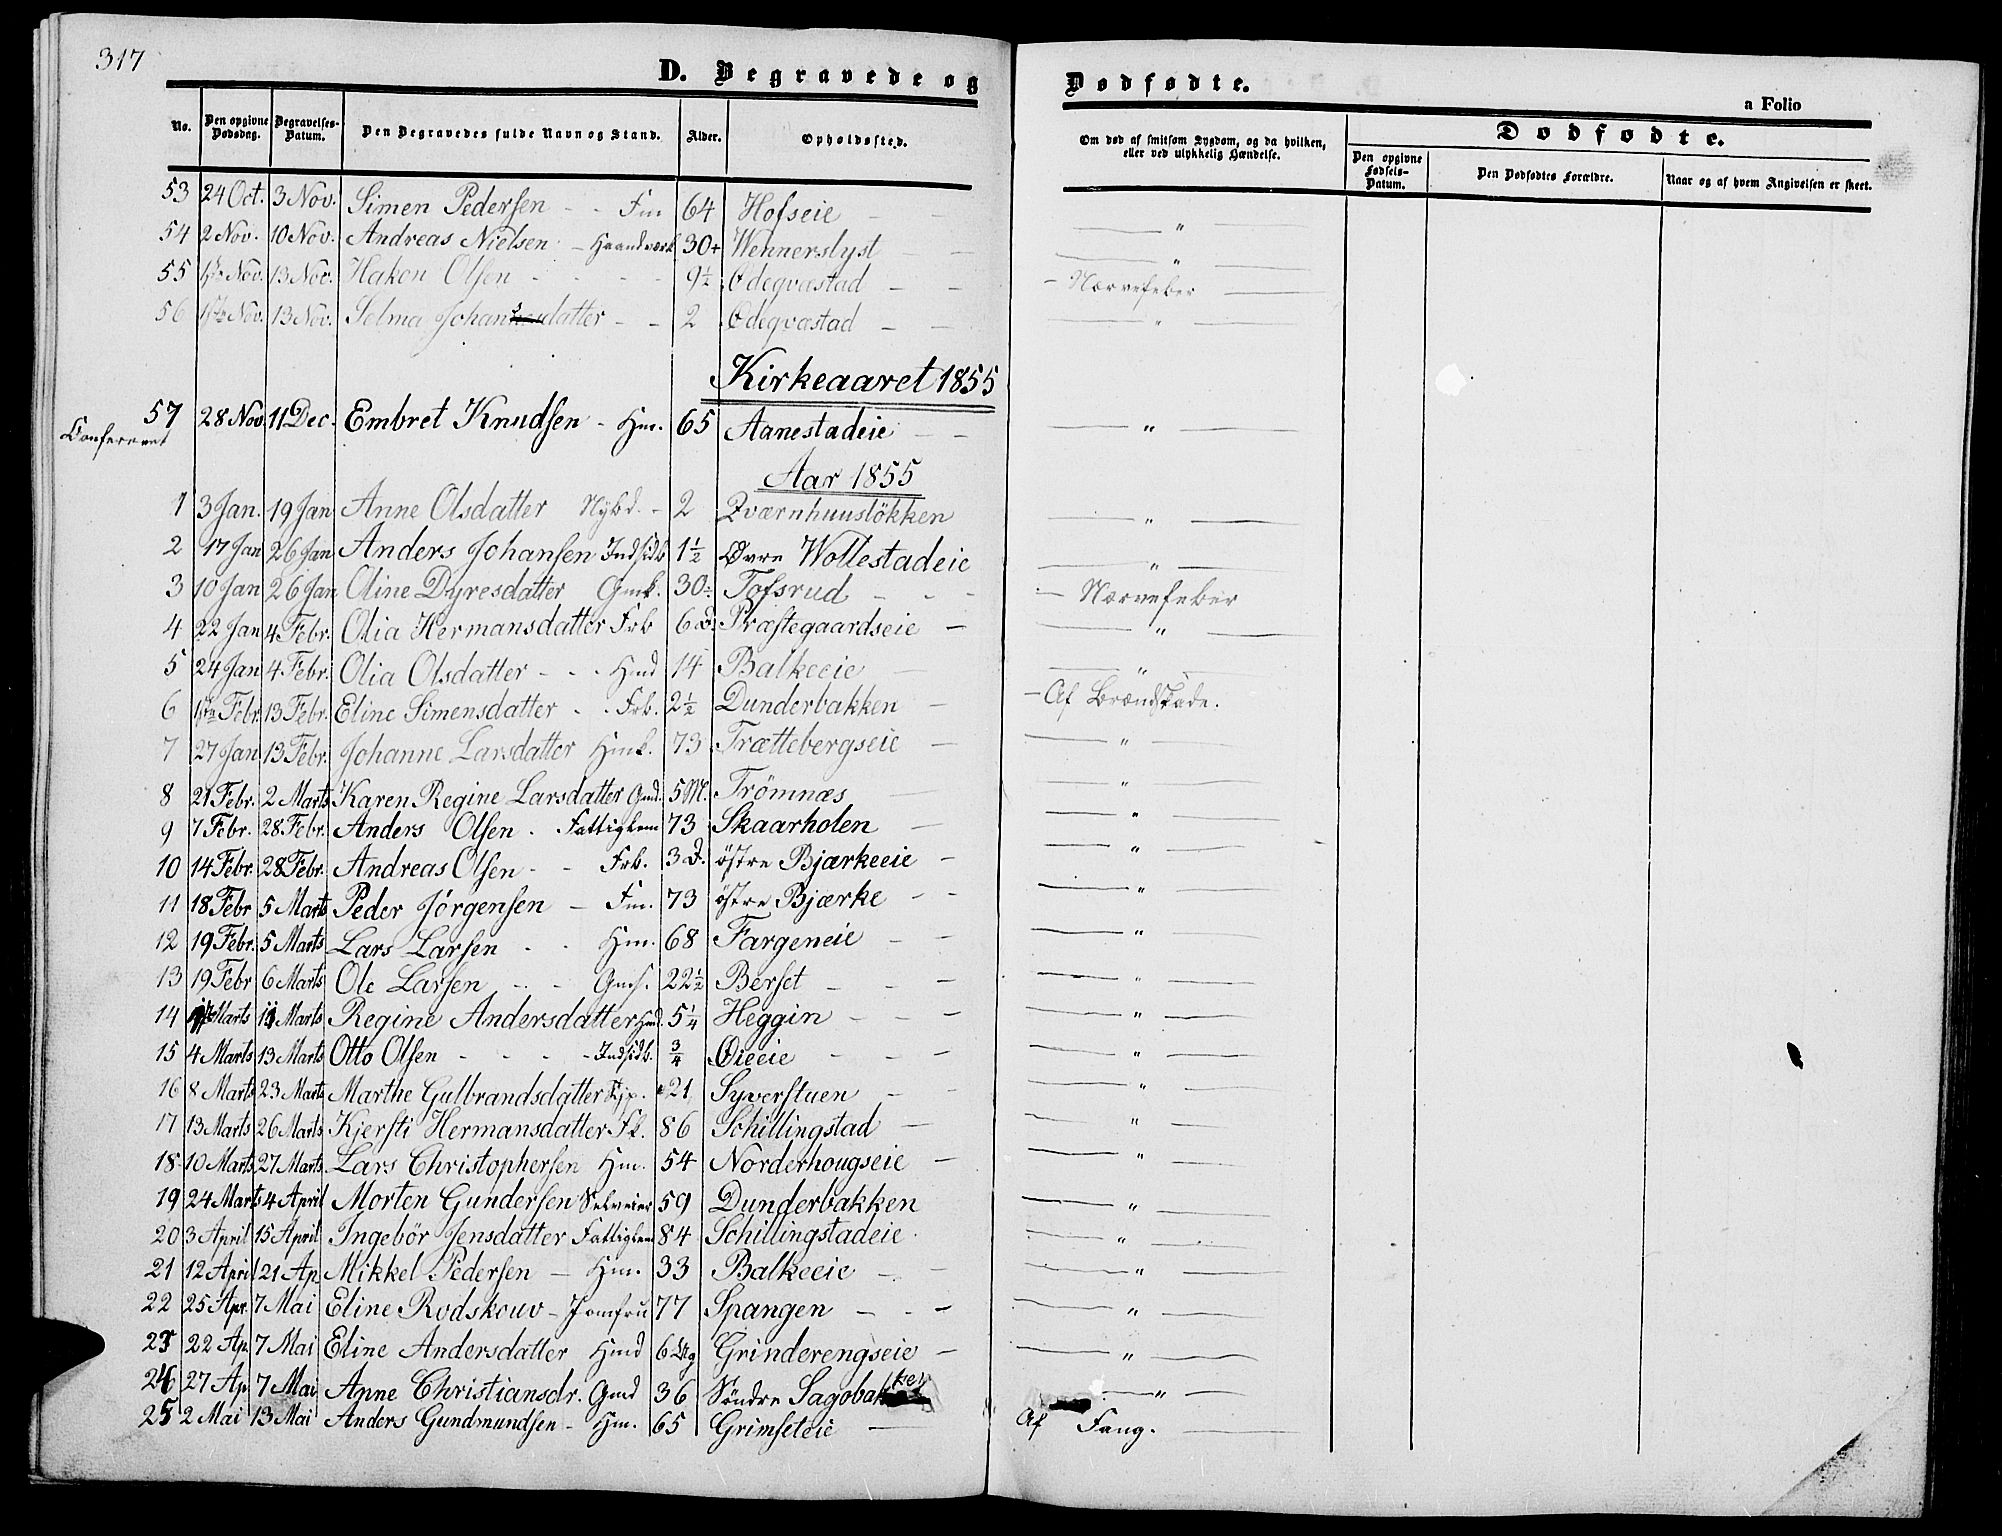 317
D. Begravede og Dødfødte.
a Folio
No. Den opgivne Dødsdag. Begravelses-Datum. Den Begravedes fulde Navn og Stand. Alder. Opholdssted. Om død af smitsom Sygdom, og da hvilken, eller ved ulykkelig Hændelse. Dødfødte.
Den opgivne Fødsels-Datum. Den Dødfødtes Forældre. Naar og af hvem Angivelsen er skeet.
53 24 Oct. 3 Nov. Simen Pedersen - - Fm 64 Hofseie — "
54 2 Nov. 10 Nov. Andreas Nielsen - Haandværk 30+ Wennerslyst — "
55 Nov. 13 Nov. Haken Olsen 9½ Ødegvæstad - Nærvefeber
56 Nov. 13 Nov. Selma Johansdatter - - 2 Ødegvæstad — "
Kirkeaaret 1855
57 28 Nov. 11 Dec. Embret Knudsen - Hm. 65 Aanestadeie — "
Confereret
Aar 1855
1 3 Jan. 19 Jan Anne Olsdatter Nybd. - 2 Qværnhuusløkken — "
2 17 Jan 26 Jan Anders Johansen Indsidb 1½ Øvre Wollestadeie — "
3 10 Jan 26 Jan Oline Dyresdatter Gmk. 30÷ Tofsrud - Nærvefeber
4 22 Jan 4 Febr. Olia Hermansdatter Frb 6 D. Præstegaardseie — "
5 24 Jan 4 Febr. Olia Olsdatter - - Hmd 14 Balkeeie — "
6 Febr. 13 Febr. Eline Simensdatter - - Frb. 2½ Dunderbakken - Af Brændskade.
7 27 Jan 13 Febr. Johanne Larsdatter Hmk. 73 Trættebergseie — "
8 21 Febr. 2 Marts Karen Regine Larsdatter Gmd. 5 M. Trömnæs — "
9 7 Febr. 28 Febr. Anders Olsen - Fattiglem 73 Skaarholen — "
10 14 Febr. 28 Febr. Andreas Olsen - - Frb. 3 D. östre Bjærkeeie — "
11 18 Febr 5 Marts Peder Jörgensen - Fm. 73 östre Bjærke — "
12 19 Febr. 5 Marts Lars Larsen - - Hm. 68 Fargeneie — "
13 19 Febr 6 Marts Ole Larsen - - Gms. 22½ Berset — "
14 Marts 11 Marts Regine Andersdatter Hmd. 5¼ Heggin — "
15 4 Marts 13 Marts Otto Olsen - - - Indsidb. ¾ Öieeie — "
16 8 Marts 23 Marts Marthe Gulbrandsdatter Tjp. 21 Syverstuen — "
17 13 Marts 26 Marts Kjersti Hermansdatter Fk. 86 Schillingstad — "
18 10 Marts 27 Marts Lars Christophersen Hm. 54 Norderhougseie — "
19 24 Marts 4 April Morten Gundersen Selveier 59 Dunderbakken — "
20 3 April 15 April Ingebör Jensdatter Fattiglem 84 Schillingstadeie — "
21 12 April 21 Ap Mikkel Pedersen - Hm. 33 Balkeeie — "
22 25 Apr. 7 Mai Eline Rodskouv - Jomfru 77 Spangen — "
23 22 Ap 7 Mai Eline Andersdatter Hmd 6 Ug Grinderengseie — "
24 27 Ap 7 Mai Anne Christiansdr. Gmd 36 Söndre Sagobakken — "
25 2 Mai 13 Mai Anders Gundmundsen - Hm. 65 Grimseteie Af Fang.